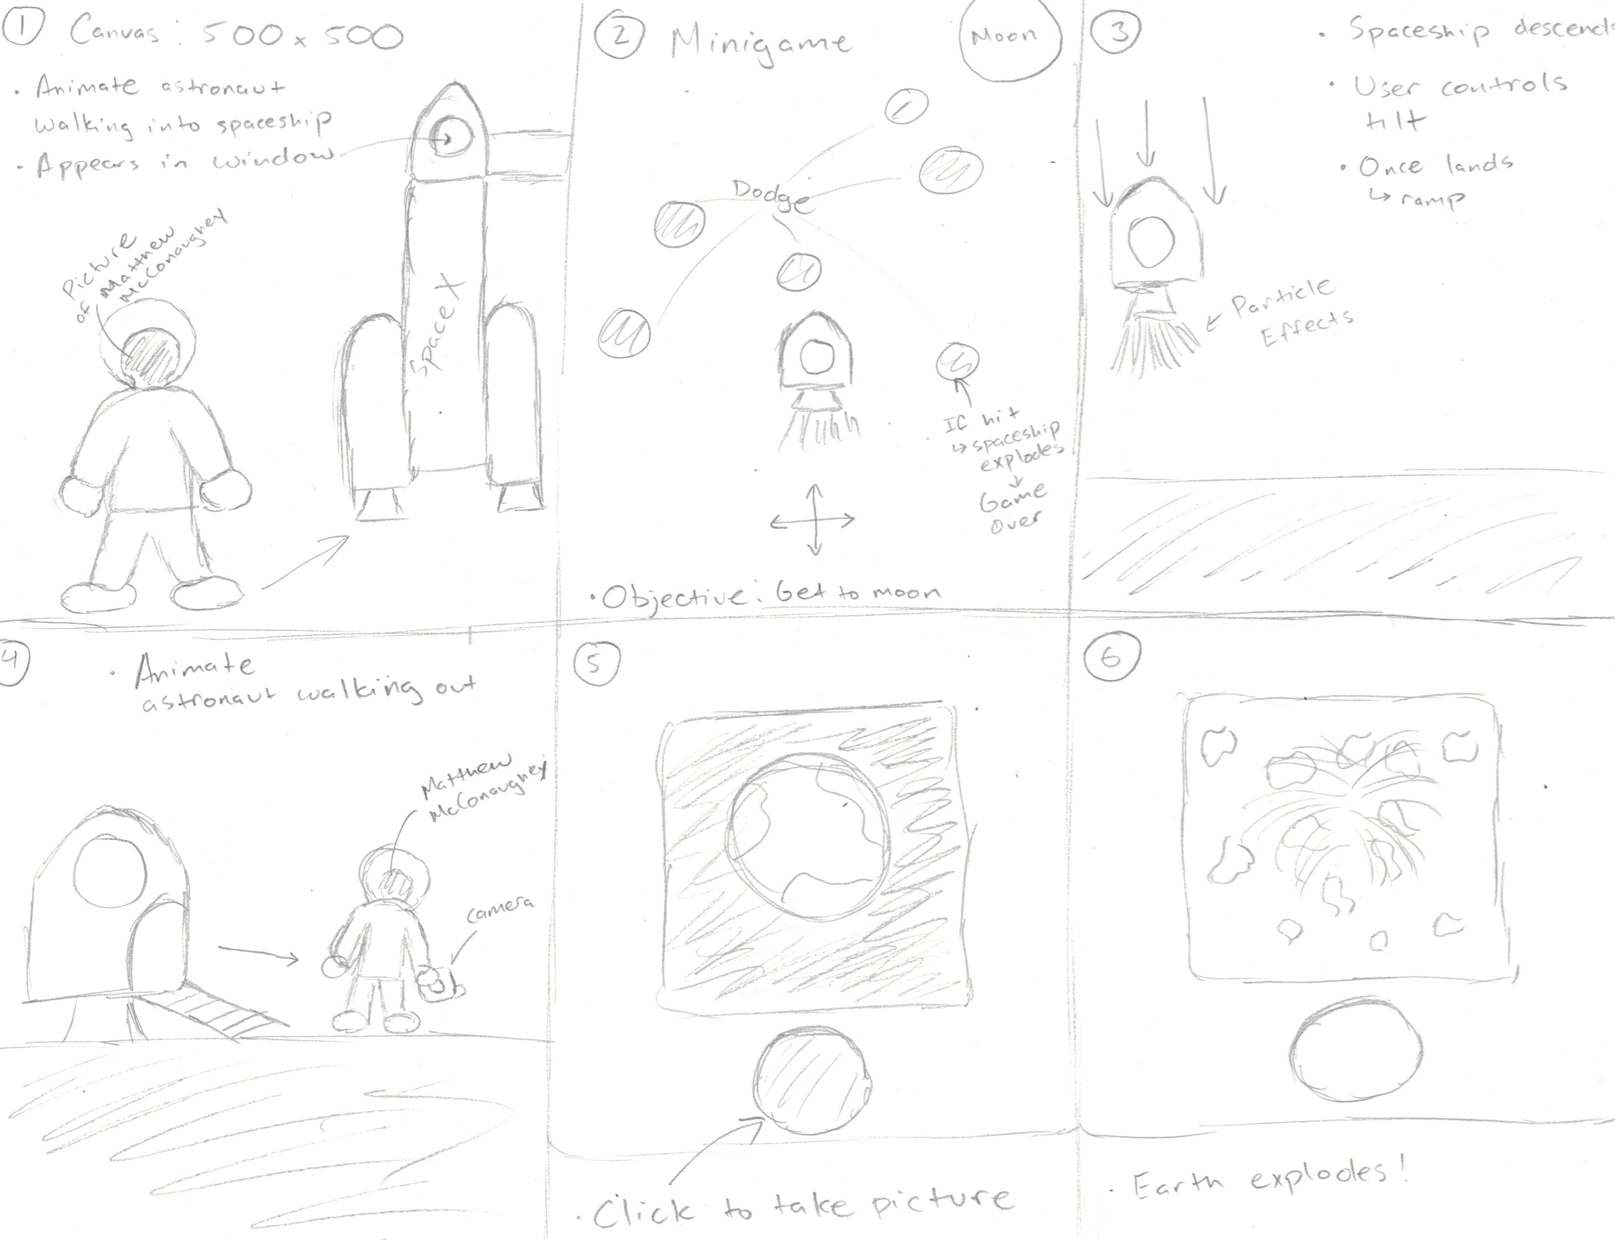 1 Canvas: 500 x 500
• Animate astronaut
walking into spaceship
• Appears in window
Picture
of Matthew
McConaughey
SpaceX
2 Minigame
Moon
Dodge
If hit
↳ spaceship
explodes
↓
Game
Over
• Objective: Get to moon
3
• Spaceship descends
• User controls
tilt
• Once lands
↳ ramp
Particle
Effects
4
• Animate
astronaut walking out
Matthew
McConaughey
camera
5
• Click to take picture
6
• Earth explodes!